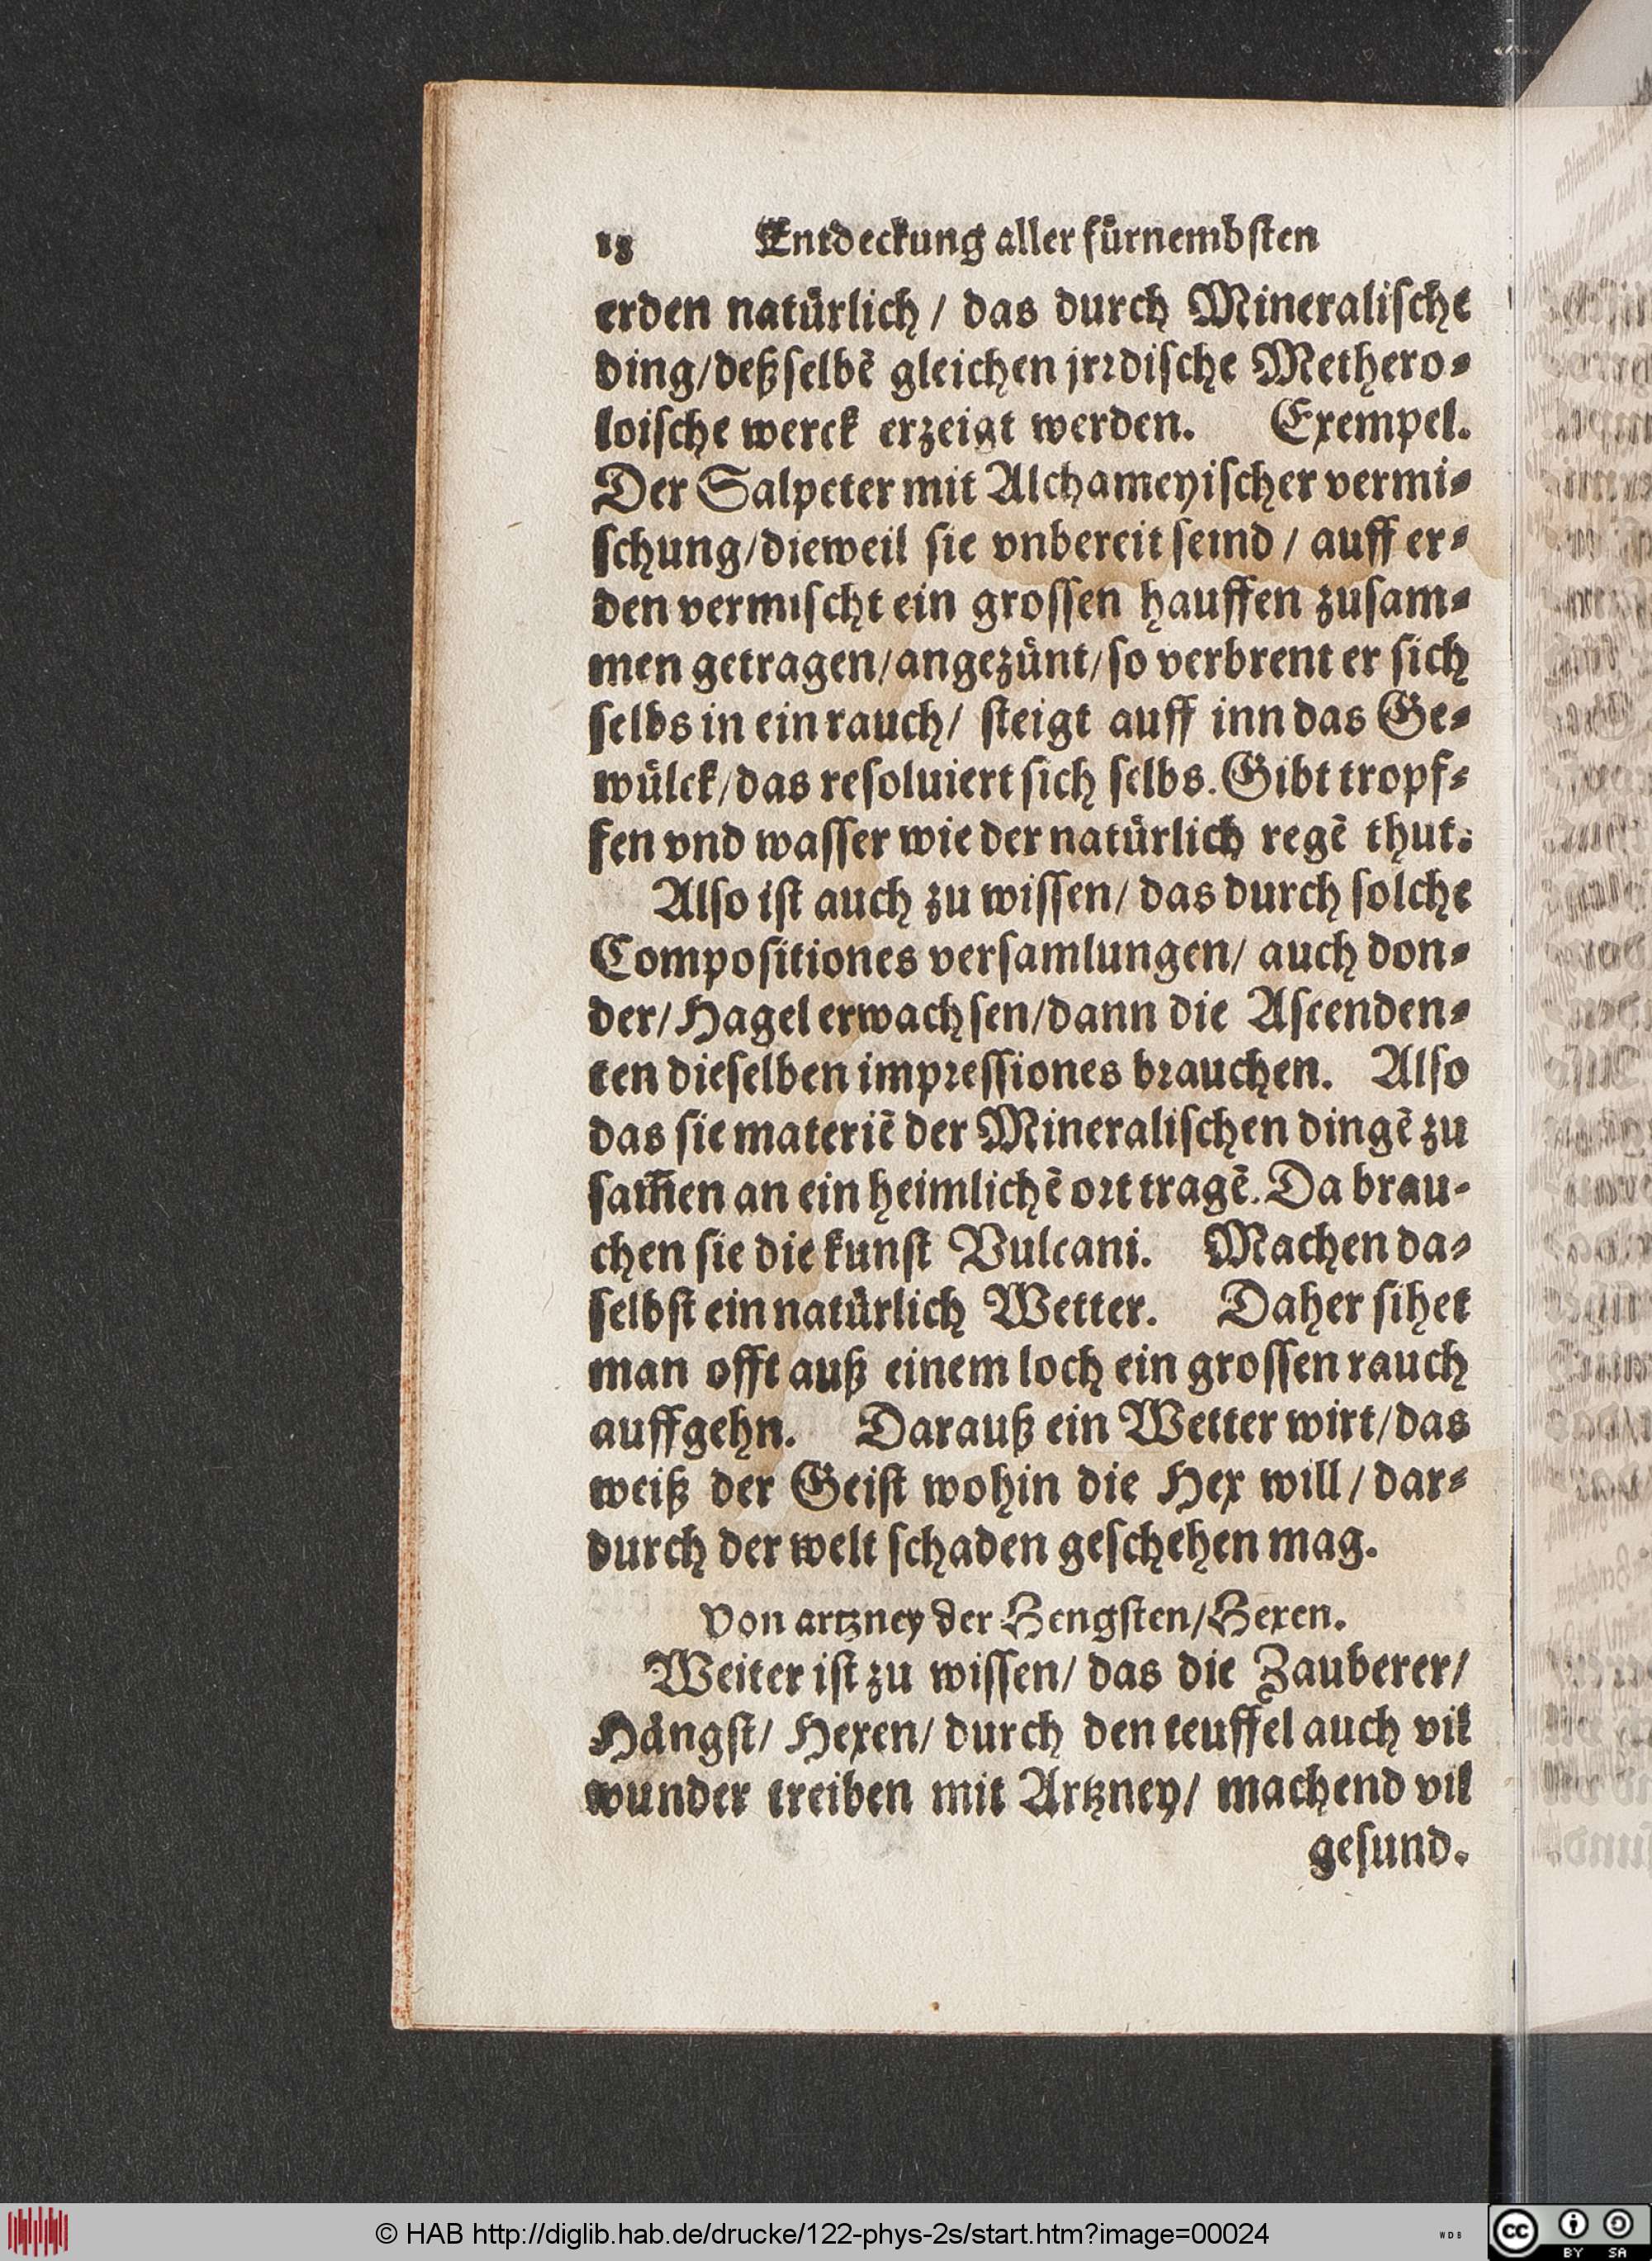 18 Entdeckung aller fuͤrnembſten
erden natuͤrlich / das durch Mineraliſche
ding/deßſelbẽ gleichen jrꝛdiſche Methero⸗
loiſche werck erzeigt werden. Exempel.
Der Salpeter mit Alchameyiſcher vermi⸗
ſchung/dieweil ſie vnbereit ſeind / auff er⸗
den vermiſcht ein groſſen hauffen zuſam⸗
men getragen/angezuͤnt/ſo verbrent er ſich
ſelbs in ein rauch/ ſteigt auff inn das Ge⸗
wuͤlck/das reſoluiert ſich ſelbs. Gibt tropf⸗
fen vnd waſſer wie der natuͤrlich regẽ thut.
Alſo iſt auch zu wiſſen/ das durch ſolche
Compoſitiones verſamlungen/ auch don⸗
der/ Hagel erwachſen/dann die Aſcenden⸗
ten dieſelben impꝛeſſiones bꝛauchen. Alſo
das ſie materiẽ der Mineraliſchen dingẽ zu
ſam̃en an ein heimlichẽ oꝛt tragẽ. Da brau-
chen ſie die kunſt Vulcani. Machen da⸗
ſelbſt ein natuͤrlich Wetter. Daher ſihet
man offt auß einem loch ein groſſen rauch
auffgehn. Darauß ein Wetter wirt/das
weiß der Geiſt wohin die Hex will / dar⸗
durch der welt ſchaden geſchehen mag.
Von artzney der Hengſten/Hexen.
Weiter iſt zu wiſſen/ das die Zauberer/
Haͤngſt/ Hexen/ durch den teuffel auch vil
wunder treiben mit Artzney/ machend vil
geſund.
© HAB http://diglib.hab.de/drucke/122-phys-2s/start.htm?image=00024
WDB
cc BY SA